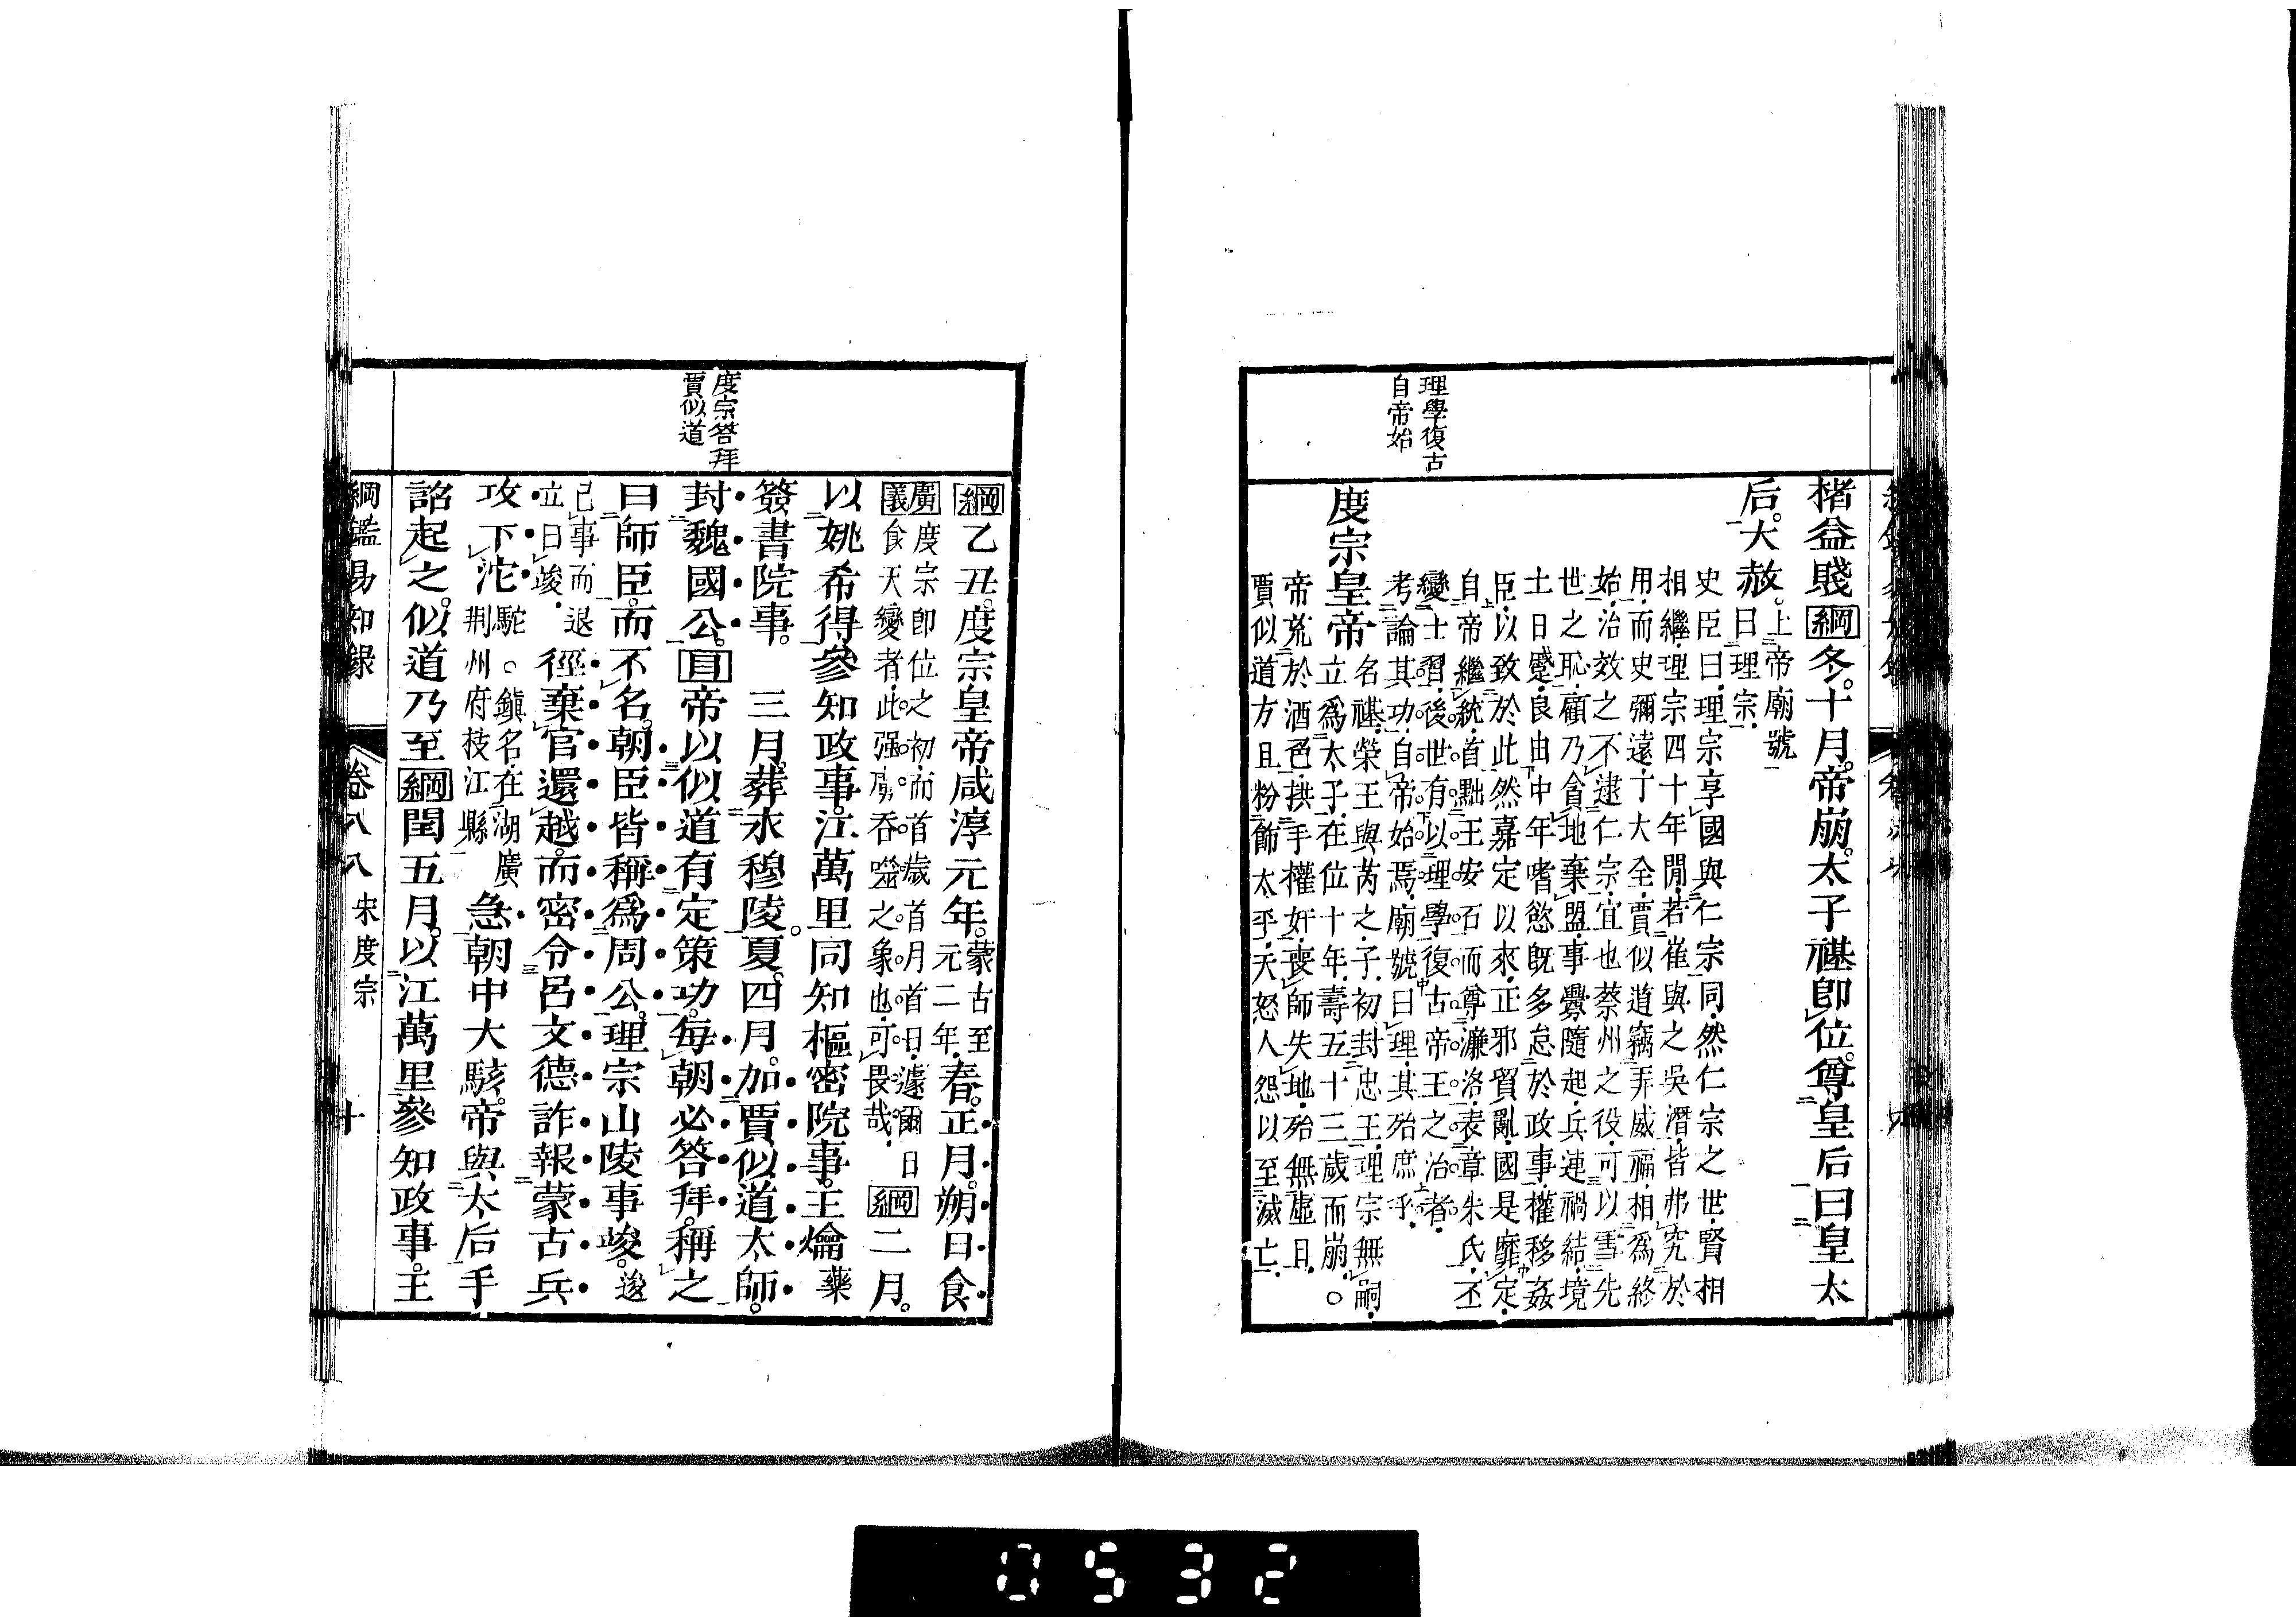 理學復古
自帝始
楮益賤綱冬。十月。帝崩。太子禥卽位。尊皇后曰皇太
后。大赦。上帝廟號
曰理宗
史臣曰理宗享國與仁宗同然仁宗之世賢相
相繼理宗四十年閒若崔與之吳潛皆弗究於
用而史彌遠丁大全賈似道竊弄威福相爲終
始治效之不逮仁宗宜也蔡州之役可以雪先
世之恥顧乃貪地棄盟事釁隨起兵連禍結境
土日蹙良由中年嗜慾旣多怠於政事權移姦
臣以致於此然嘉定以來正邪貿亂國是靡定
自帝繼統首黜王安石而尊濂洛表章朱氏丕
變士習後世有以理學復古帝王之治者
考論其功自帝始焉廟號曰理其殆庶乎
度宗皇帝
名禥榮王與芮之子初封忠王理宗無嗣
立爲太子在位十年壽五十三歲而崩○
帝荒於酒色拱手權奸喪師失地殆無虛日
賈似道方且粉飾太平天怒人怨以至滅亡
度宗答拜
賈似道
綱乙丑。度宗皇帝咸淳元年。蒙古至
元二年春。正月。朔日食
廣義度宗卽位之初而首歲首月首日遽爾日
食天變者此强虜吞噬之象也可畏哉
綱二月。
以姚希得參知政事。江萬里同知樞密院事。王爚藥
簽書院事。三月。葬永穆陵。夏。四月。加賈似道太師。
封魏國公。目帝以似道有定策功。每朝必答拜。稱之
曰師臣。而不名。朝臣皆稱爲周公。理宗山陵事竣。逡
已事而退
立曰竣
徑棄官還越。而密令呂文德詐報蒙古兵
攻下沱駝○鎮名在湖廣
荆州府枝江縣
急。朝中大駭。帝與太后手
詔起之。似道乃至綱閏五月。以江萬里參知政事。王
綱鑑易知錄
卷八八
宋度宗
十
0532